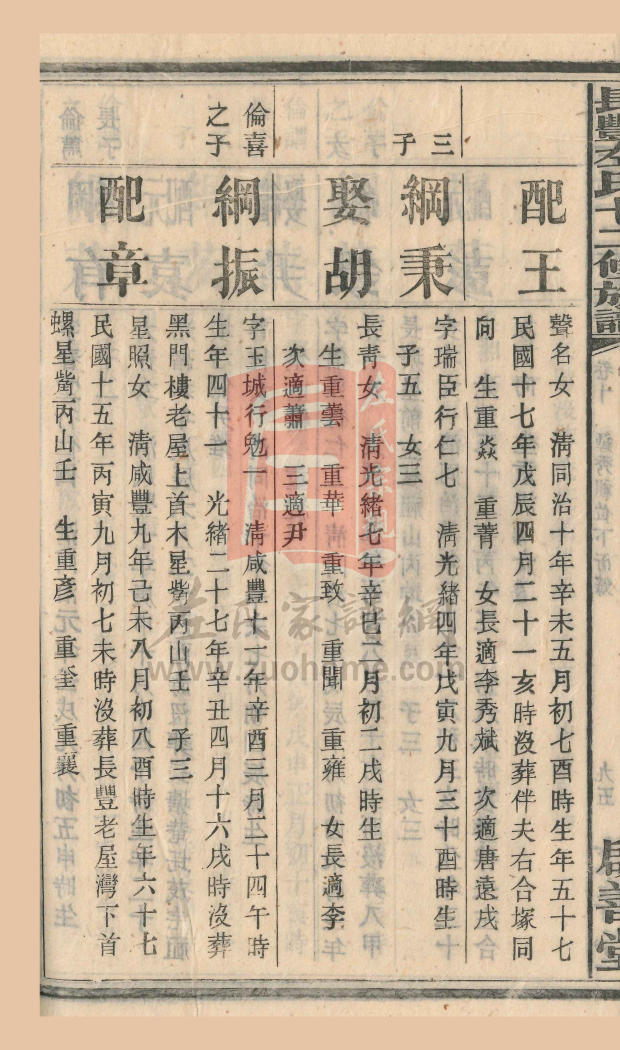 長豐左氏十二修族譜
卷十
九五
配王
聲名女　清同治十年辛未五月初七酉時生年五十七
民國十七年戊辰四月二十一亥時沒葬伴夫右合塚同
向　生重焱　重菁　女長適李秀斌　次適唐遠戌
三子
綱秉
字瑞臣行仁七　清光緒四年戊寅九月三十酉時生
子五　女三
娶胡
長青女　清光緒七年辛巳六月初二戌時生
生重雲　重華　重致　重聞　重雍　女長適李
次適蕭　三適尹
倫喜之子
綱振
字玉城行勉一　清咸豐十一年辛酉三月二十四午時
生年四十一　光緒二十七年辛丑四月十六戌時沒葬
黑門樓老屋上首木星嘴丙山壬　子三
配章
星照女　清咸豐九年己未八月初八酉時生年六十七
民國十五年丙寅九月初七未時沒葬長豐老屋灣下首
螺星嘴丙山壬　生重彥　重奎　重襄
左氏家譜網
www.zuohome.com